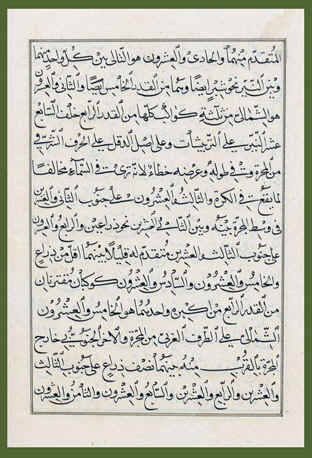 المتقدم منهما والحادى والعشرون هو التالى بين كل واحد منهما
وبين النير نحو شبر ايضًا وهما من القدر الخامس ايضًا والثانى والعشرون
هو الشمالى من ثلثة كواكب كلها من القدر الرابع خلف التاسع
عشر النير على التربيثات وعلى اصل الدقل على الحرف الشرقى
من المجرة وفى طوله وعرضه خطاء لانه ترى فى السماء مخالفًا
لما يقع فى الكرة والثالث والعشرون على جنوب الثانى والعشرين
فى وسط المجرة بينه وبين الثانى والعشرين نحو ذراعين والرابع والعشرون
على جنوب الثالث والعشرين متقدم له قليلاً بينهما اقل من ذراع
والخامس والعشرون والسادس والعشرون كوكبان مقترنان
من القدر الرابع من اكبره واحدهما هو الخامس والعشرون
الشمالى على الطرف الغربى من المجرة والآخر الجنوبى خارج
المجرة بالقرب منه بينهما نصف ذراع على جنوب الثالث
والعشرين والرابع والعشرين والسابع والعشرون والثامن والعشرون